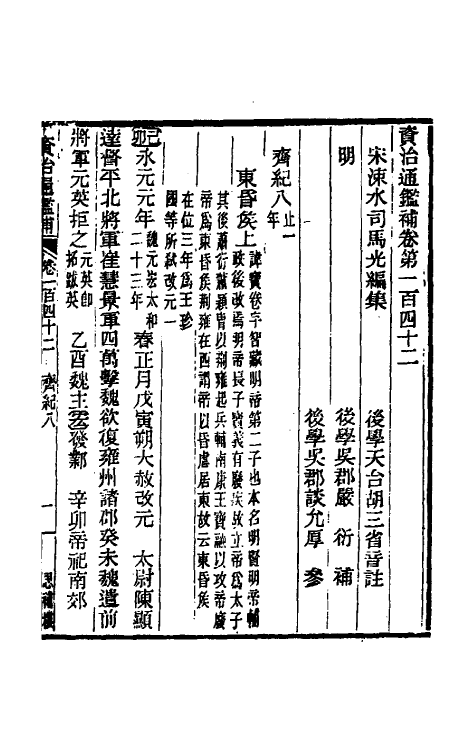 資治通鑑補卷第一百四十二
宋涑水司馬光編集
後學天台胡三省音註
明
後學吳郡嚴衍補
後學吳郡談允厚參
齊紀八止一年
東昏侯上諱寶卷字智藏明帝第二子也本名明賢明帝輔
政後改焉明帝長子寶義有廢疾故立帝爲太子
其後蕭衍蕭穎胄以荊雍起兵輔南康王寶融以攻帝廢
帝爲東昏侯荊雍在西謂帝以昏虐居東故云東昏侯
在位三年爲王珍
國等所弑改元一
己卯永元元年魏元宏太和二十三年春正月戊寅朔大赦改元 太尉陳顯
達督平北將軍崔慧景軍四萬擊魏欲復雍州諸郡癸未魏遣前
將軍元英拒之元英卽拓跋英 乙酉魏主宏發鄴 辛卯帝祀南郊
資治通鑑補
卷一百四十二 齊紀八
一
思補樓